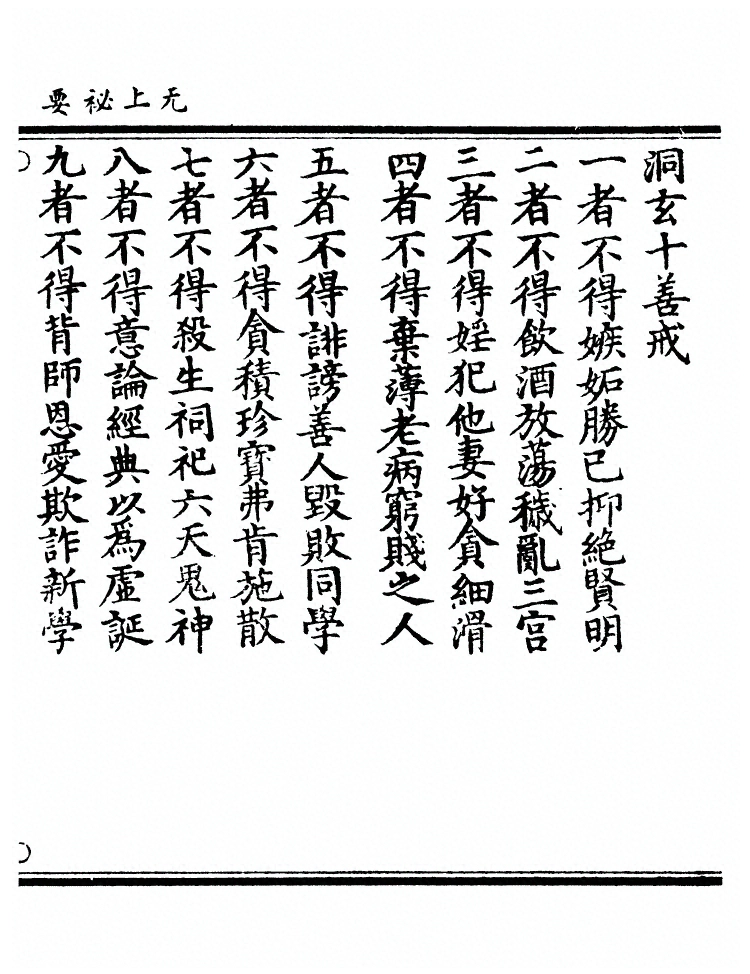 无上祕要
洞玄十善戒
一者不得嫉妬勝己抑絶賢明
二者不得飲酒放蕩穢亂三宫
三者不得婬犯他妻好貪細滑
四者不得棄薄老病窮賤之人
五者不得誹謗善人毀敗同學
六者不得貪積珍寶弗肯施散
七者不得殺生祠祀六天鬼神
八者不得意論經典以爲虛誕
九者不得背師恩愛欺詐新學